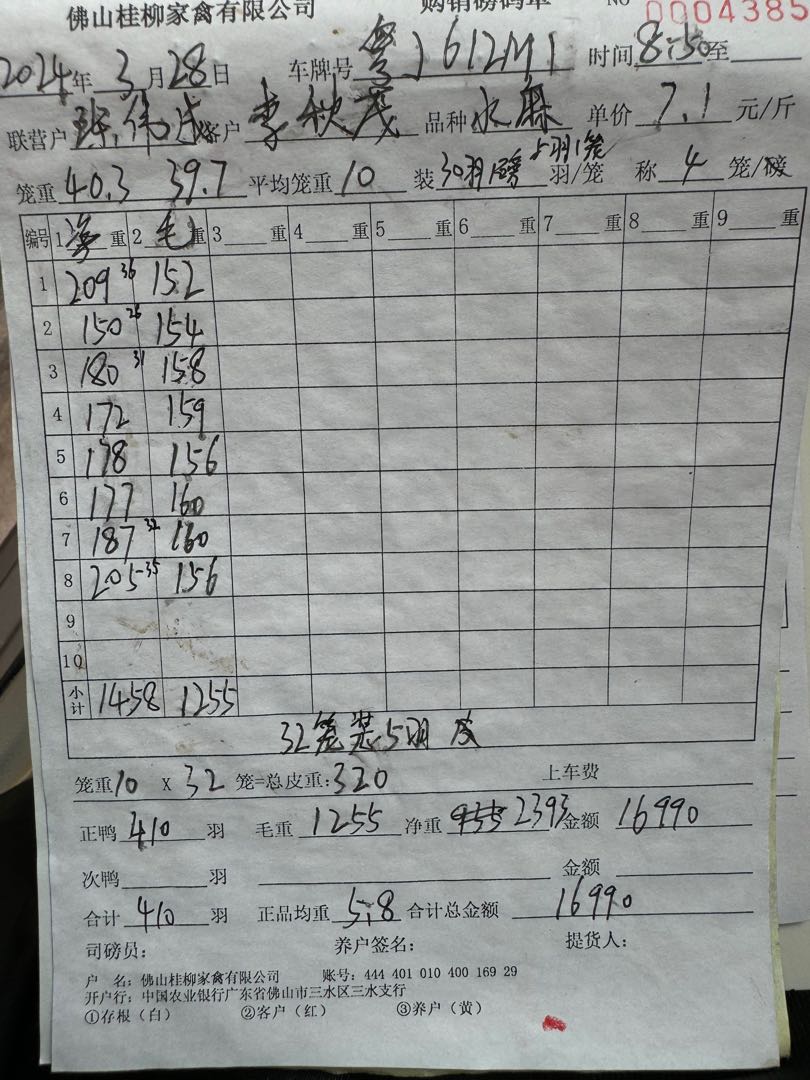 佛山桂柳家禽有限公司 购销磅码单 NO 0004385
2024年3月28日 车牌号 粤J612M1 时间8:50至
联营户 伟 客户 李秋茂 品种 水麻 单价 7.1 元/斤
笼重 40.3 39.7 平均笼重 10 装 30羽1磅 5羽1笼 羽/笼 称 4 笼/磅
编号 1 净 重 2 毛 重 3 重 4 重 5 重 6 重 7 重 8 重 9 重
1 209 36 152
2 150 26 154
3 180 31 158
4 172 159
5 178 156
6 177 160
7 187 32 160
8 205 35 156
9
10
小计 1458 1255
32笼装5羽 皮
笼重10 X 32 笼=总皮重:320 上车费
正鸭 410 羽 毛重 1255 净重 935 2393 金额 16990
次鸭 羽 金额
合计 410 羽 正品均重 5.8 合计总金额 16990
司磅员: 养户签名: 提货人:
户 名: 佛山桂柳家禽有限公司 账号: 444 401 010 400 169 29
开户行: 中国农业银行广东省佛山市三水区三水支行
①存根(白) ②客户(红) ③养户(黄)